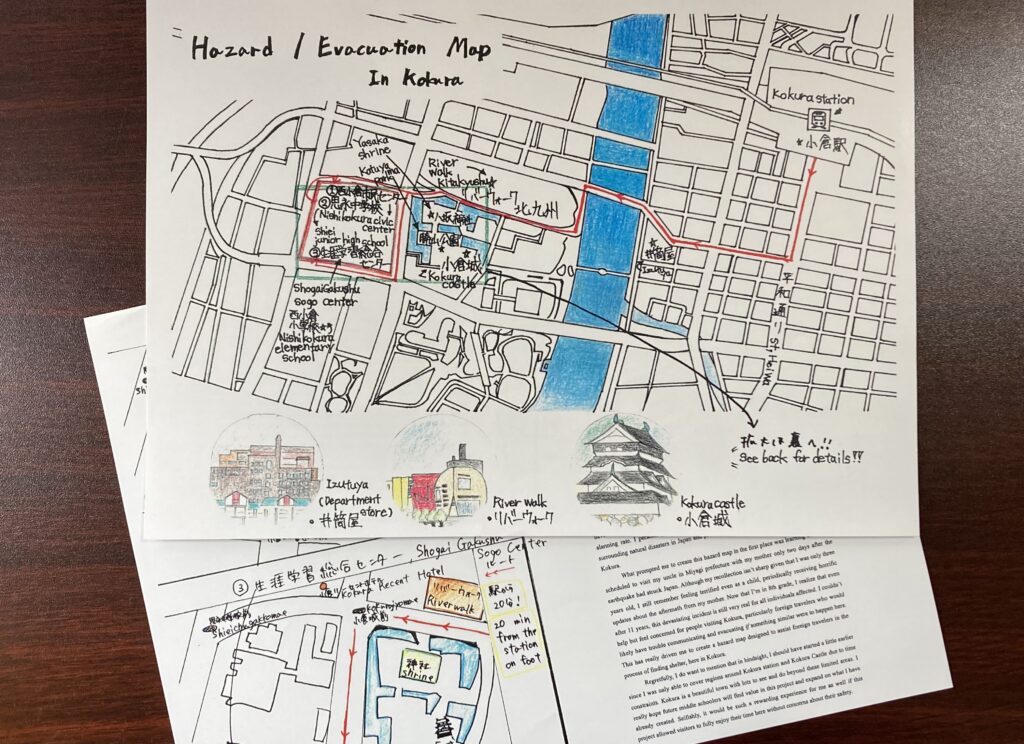 Hazard / Evacuation Map
In Kokura
Kokura station
小倉駅
Yasaka
shrine
River
walk
Kitakyushu
リバーウォーク
北九州
(Nishikokura civic
center
Shiei
junior high school
センター
Shogaigakushu
sogo center
西小倉
小学校
Nishikokura
elementary
school
勝山公園
小倉城
Kokura
castle
井筒屋
Izutuya
平和通り St. Heiwa
拡大は裏へ!!
See back for details!!
Izutuya
(Department
store)
・井筒屋
River walk
・リバーウォーク
Kokura castle
・小倉城
③ 生涯学習総合センター
Shogai Gakushu
Sogo Center
ルート
Kokura Recent Hotel
リバーウォーク
Riverwalk
駅から
20分!
20 min
from the
station
on foot
小倉城前
神社
shrine
surrounding natural disasters in Japan and
What prompted me to create this hazard map in the first place was learning
scheduled to visit my uncle in Miyagi prefecture with my mother only two days after the
earthquake had struck Japan. Although my recollection isn't sharp given that I was only three
years old, I still remember feeling terrified even as a child, periodically receiving horrific
updates about the aftermath from my mother. Now that I'm in 8th grade, I realize that even
after 11 years, this devastating incident is still very real for all individuals affected. I couldn't
help but feel concerned for people visiting Kokura, particularly foreign travelers who would
likely have trouble communicating and evacuating if something similar were to happen here.
This has really driven me to create a hazard map designed to assist foreign travelers in the
process of finding shelter, here in Kokura.
Regretfully, I do want to mention that in hindsight, I should have started a little earlier
since I was only able to cover regions around Kokura station and Kokura Castle due to time
constraints. Kokura is a beautiful town with lots to see and do beyond these limited areas. I
really hope future middle schoolers will find value in this project and expand on what I have
already created. Selfishly, it would be such a rewarding experience for me as well if this
project allowed visitors to fully enjoy their time here without concerns about their safety.